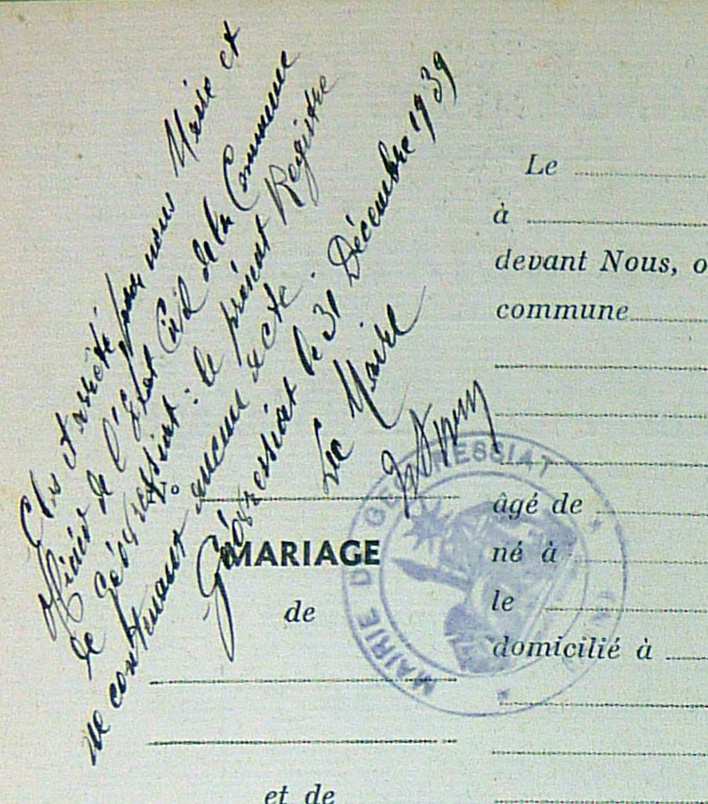 Clos et arrêté par nous Maire et
officier de l'Etat Civil de la Commune
de Géovressiat : le présent Registre
ne contenant aucun acte.
Géovressiat le 31 Décembre 1939
Le Maire
MARIAGE
de
et de
Le
à
devant Nous, o
commune
âgé de
né à
le
domicilié à
MAIRIE DE GÉOVRESSIAT